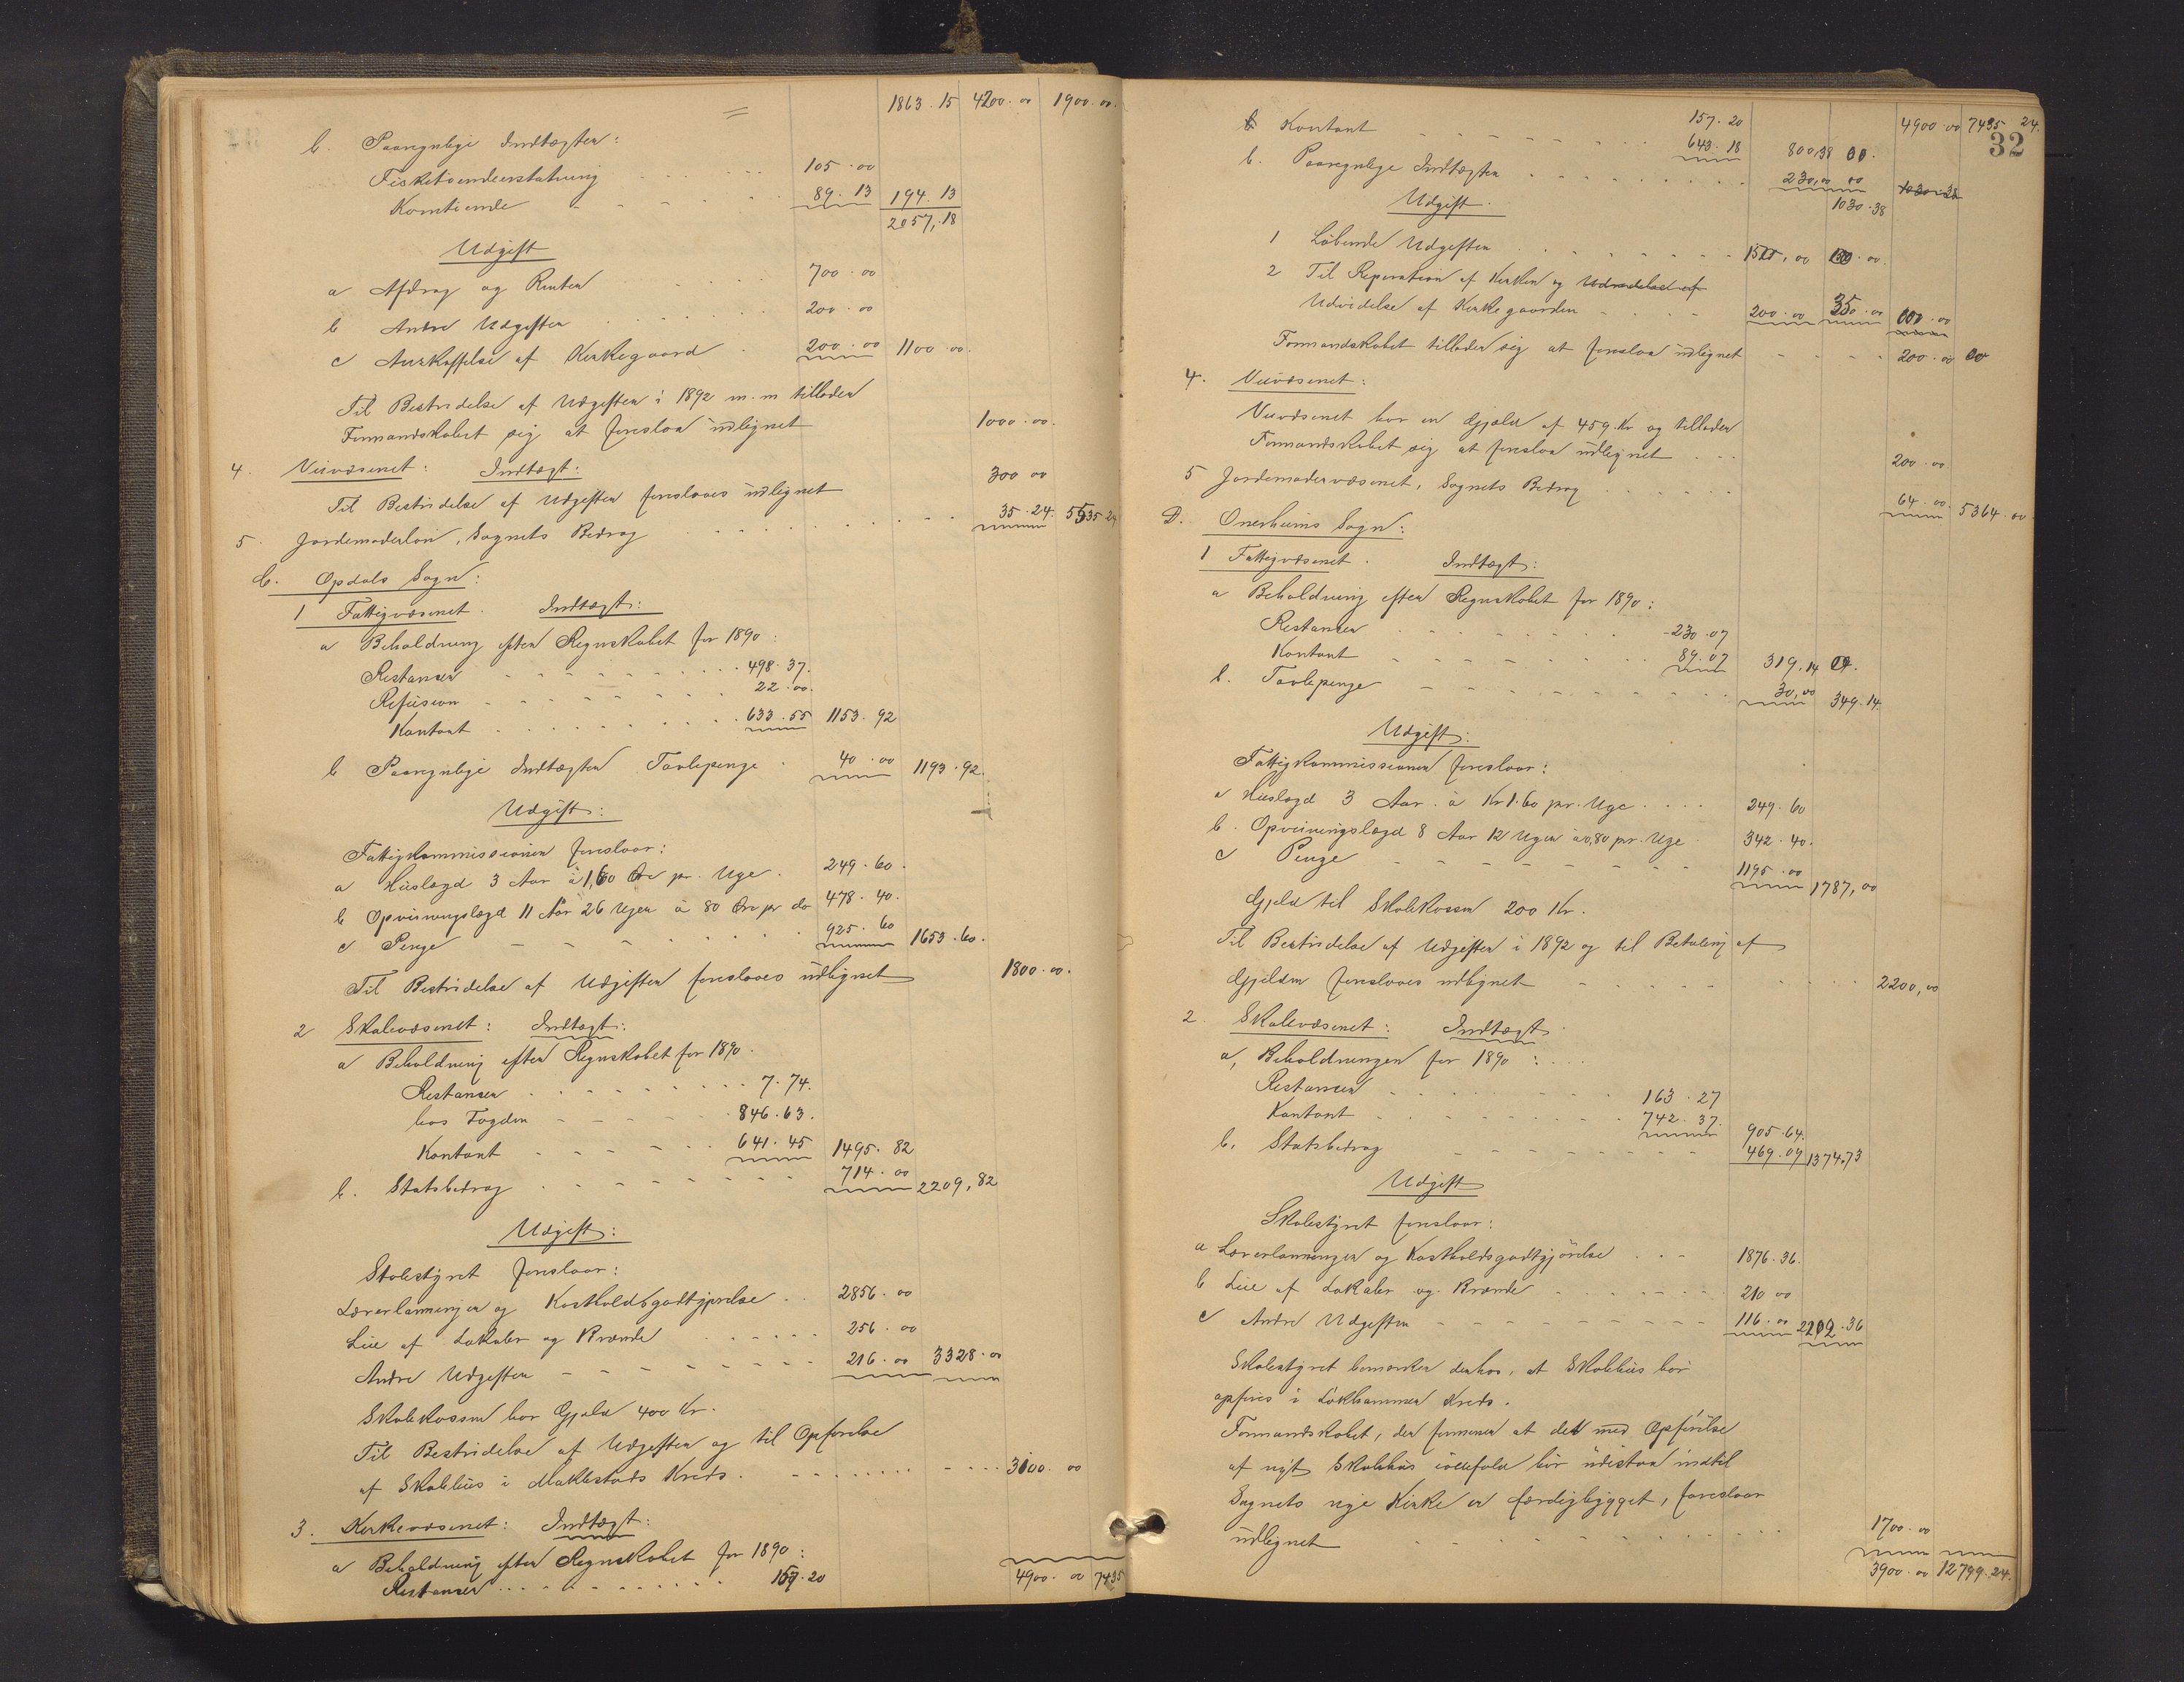 1863.15 4200.00 1900.00.
b. Paaregnlige Indtægter:
Fisketiendeerstatning 105.00
Korntiende 89.13 194.13
2057,18
Udgift
a Afdrag og Renter 700.00
b Andre Udgifter 200.00
c Anskaffelse af Kirkegaard 200.00 1100.00.
Til Bestridelse af Udgifter i 1892 m.m tillader
Formandskabet sig at foreslaa udlignet 1000.00.
4. Veivæsenet: Indtægt:
Til Bestridelse af Udgifter foreslaaes udlignet 300 00
5. Jordemoderløn, Sognets Bidrag 35.24. 5535 24
C. Opdals Sogn:
1 Fattigvæsenet. Indtægt:
a Beholdning efter Regnskabet for 1890:
Restancer 498.37.
Refusion 22.00.
Kontant 633.55 1153.92
b Paaregnlige Indtægter Tavlepenge 40.00 1193.92.
Udgift:
Fattigkommissionen foreslaar:
a Huslægd 3 Aar à 1,60 Øre pr. Uge. 249.60.
b Opvisningslægd 11 Aar 26 Uger à 80 Øre pr do 478.40.
c Penge 925.60 1653.60.
Til Bestridelse af Udgifter foreslaaes udlignet 1800.00.
2 Skolevæsenet: Indtægt:
a Beholdning efter Regnskabet for 1890.
Restancer 7.74.
hos Fogden 846.63.
Kontant 641.45 1495.82
b. Statsbidrag 714.00 2209,82
Udgift:
Skolestyret foreslaar:
Lærerlønninger og Kostholdsgodtgjørelse 2856.00
Leie af Lokaler og Brænde 256.00
Andre Udgifter 216.00 3328.00
Skolekassen har Gjæld 400 Kr.
Til Bestridelse af Udgifter og til Opførelse
af Skolehus i Kreds. 3100.00
3. Kirkevæsenet: Indtægt:
a Beholdning efter Regnskabet for 1890:
Restancer 157.20
4900.00 7435
32
157.20 4900.00 7435 24.
Kontant 643.18 800,38
b. Paaregnlige Indtægter 230,00 1030.38
1030.38
Udgift.
1 Løbende Udgifter 150,00
2 Til Reparation af Kirken og Udvidelse af
Udvidelse af Kirkegaarden 200.00 350.00
Formandskabet tillader sig at foreslaa udlignet 200.00
4. Veivæsenet:
Veivæsenet har en Gjæld af 459. Kr og tillader
Formandskabet sig at foreslaa udlignet 200.00
5 Jordemodervæsenet, Sognets Bidrag 64.00. 5364.00
D. Onerheims Sogn:
1 Fattigvæsenet. Indtægt:
a Beholdning efter Regnskabet for 1890:
Restancer 230.07
Kontant 89.07 319.14
b. Tavlepenge 30,00 349.14.
Udgift:
Fattigkommissionen foreslaar:
a Huslægd 3 Aar. à Kr 1.60 pr. Uge 249.60
b. Opvisningslægd 8 Aar 12 Uger à 0,80 pr. Uge 342.40.
c Penge 1195.00 1787,00
Gjæld til Skolekassen 200 Kr.
Til Bestridelse af Udgifter i 1892 og til Betaling af
Gjælden foreslaaes udlignet 2200,00
2. Skolevæsenet: Indtægt
a, Beholdningen for 1890:
Restancer 163.27
Kontant 742.37. 905.64.
b. Statsbidrag 469.09 1374.73
Udgift
Skolestyret foreslaar:
a Lærerlønninger og Kostholdsgodtgjörelse 1876.36.
b Leie af Lokaler og Brænde 210 00
c Andre Udgifter 116.00 2202.36
Skolestyret bemærker derhos, at Skolehus bør
opføres i Lökhammer Kreds.
Formandskabet, der formener at det med Opförelse
af nyt Skolehus ialfald bör udestaa indtil
Sognets nye Kirke er færdigbygget, foreslaar
udlignet 1700.00
3900.00 12799.24.